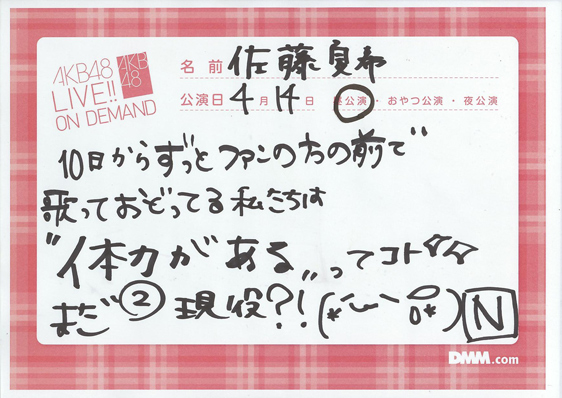 AKB48
LIVE!!
ON DEMAND
AKB
48
名前 佐藤夏希
公演日 4月14日 昼公演・おやつ公演・夜公演
10日からずっとファンの方の前で
歌っておどってる私たちは
"体力がある,,ってコト☆☆
まだ②現役?!(*´ー` o*) N
DMM.com